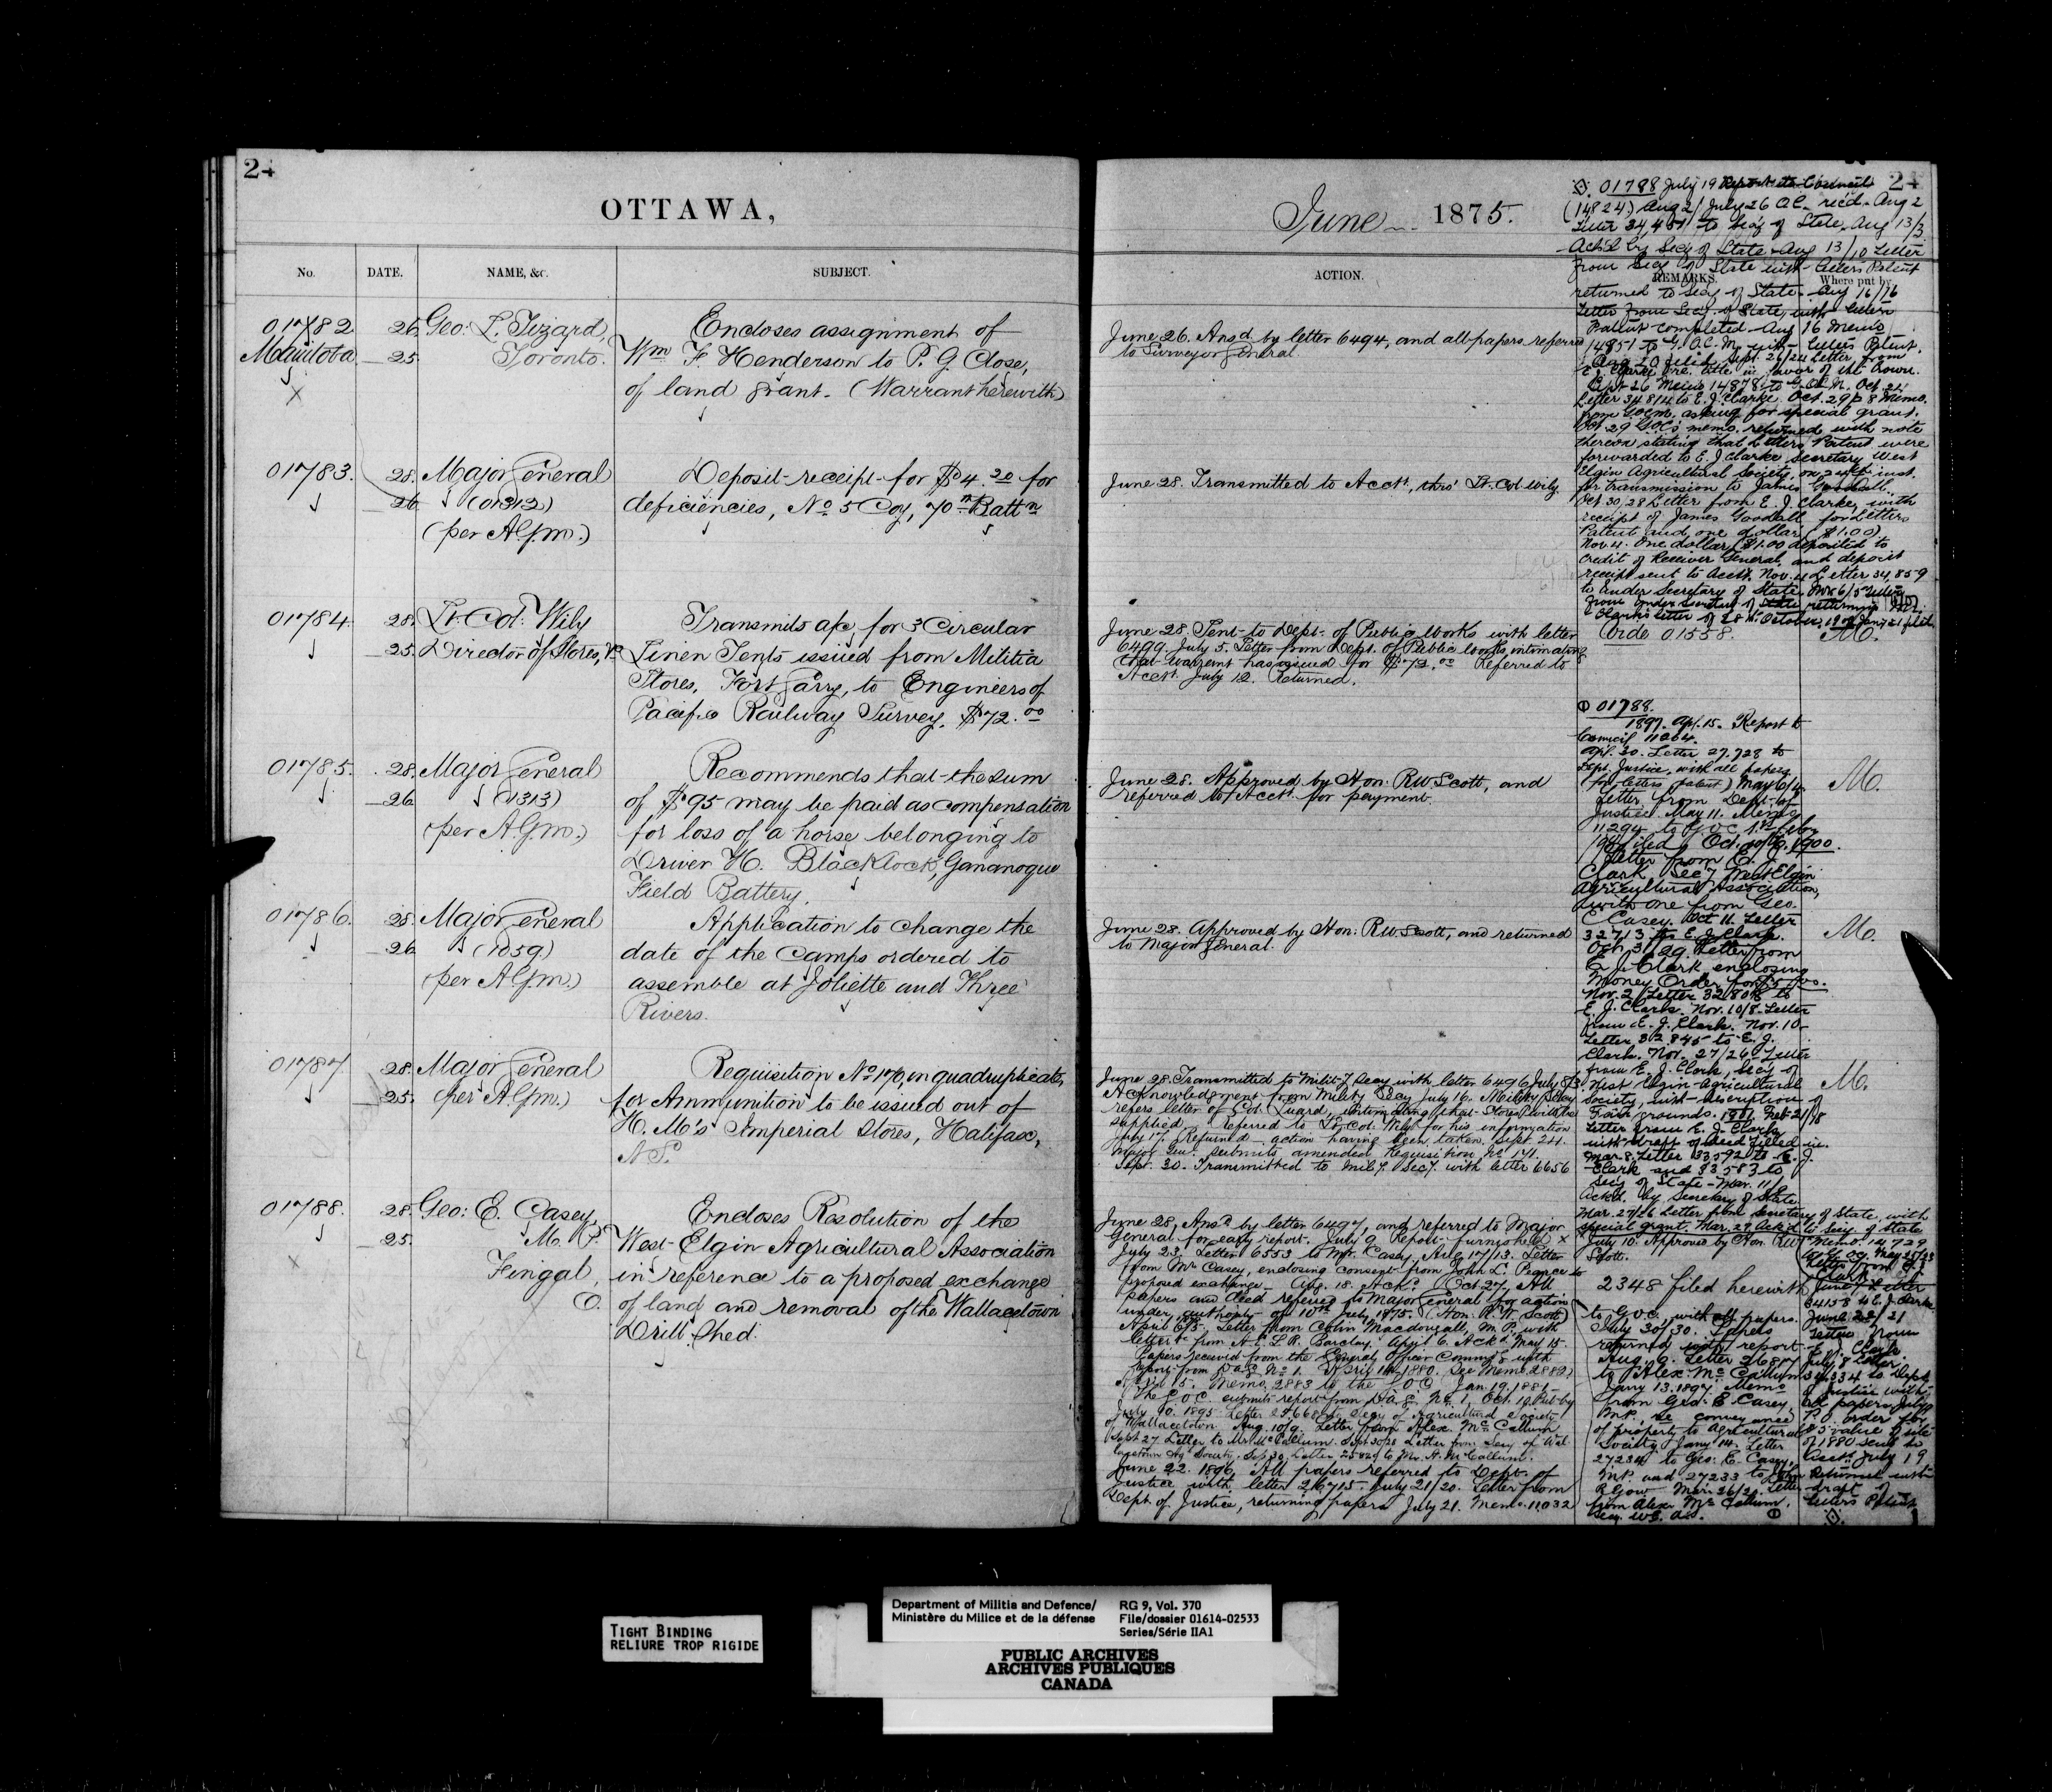 24
OTTAWA,
No.
DATE.
NAME, &c.
SUBJECT.
01782
Manitoba
X
26
25
Geo: L. Tizard,
Toronto.
Encloses assignment of
Wm F. Henderson to P. G. Close,
of land grant. (Warrant herewith)
01783.
28.
26
Major General
(01312)
(per A.G.M.)
Deposit receipt for $4.20 for
deficiencies, No 5 Coy, 70th Battn
01784
28.
25.
Lt. Col. Wily
Director of Stores,
Transmits a/c for 3 Circular
Linen Tents issued from Militia
Stores, Fort Garry, to Engineers of
Pacific Railway Survey. $72.00
01785.
28.
26
Major General
(1313)
(per A.G.M.)
Recommends that the sum
of $95 may be paid as compensation
for loss of a horse belonging to
Driver H. Blacklock, Gananoque
Field Battery.
01786.
28.
26
Major General
(1059)
(per A.G.M.)
Application to change the
date of the Camps ordered to
assemble at Joliette and Three
Rivers.
01787.
28.
25.
Major General
(per A.G.M.)
Requisition No 170, in quadruplicate,
for Ammunition to be issued out of
H. M's Imperial Stores, Halifax,
N.S.
01788.
X
28.
25.
Geo: E. Casey,
M. P.
Fingal,
O.
Encloses Resolution of the
West Elgin Agricultural Association
in reference to a proposed exchange
of land and removal of the Wallacetown
Drill Shed.
June 1875.
24
ACTION.
REMARKS.
Where put by
June 26. Ansd. by letter 6494, and all papers referred
to Surveyor General.
June 28. Transmitted to Acct., thro' Lt. Col. Wily.
June 28. Sent to Dept. of Public Works with letter
6499. July 5. Letter from Dept. of Public Works, intimating
that warrant has issued for $72.00 Referred to
Acct. July 12. Returned.
June 28. Approved by Hon. R.W. Scott, and
referred to Acct. for payment.
June 28. Approved by Hon: R.W. Scott, and returned
to Major General.
June 28. Transmitted to Milit'y Secy with letter 6496 July 8/3
Acknowledgment from Military Secy July 16. Military Secy
refers letter of Col. intimating that Stores will be
supplied. Referred to Lt. Col. Wily for his information
July 17. Returned action having been taken. Sept. 24.
Major Genl. submits amended Requisition No 171.
Sept. 30. Transmitted to Mil'y Sec'y. with letter 6656
June 28, Ansd. by letter 6497, and referred to Major
General for early report. July 9 Report furnished X
July 23. Letter 6553 to Mr. Casey, Aug 17/13. Letter
from Mr Casey, enclosing consent from John L. Pearce to
proposed exchange. Aug. 18. Ackd. Oct. 27. All
papers and deed referred to Major General for action
under authority of 10th July, 1875. (Hon. R. W. Scott)
April 6/5. Letter from Colin Macdougall, M.P. with
letter from Barclay. Apr. 6. Ackd. May 15.
Papers received from the General Officer Command'g with
report from No 1. April 1880. See Memo 2882)
April 15. Memo 2883 to the G.O.C. Jan. 19. 1881
The G.O.C. submits report from No 1, Oct. 19. Put by
July 10. 1895. Letter to Secy of Agricultural Society
of Wallacetown. Aug. 10/9. Letter from Alex. McCallum.
Sept 27 Letter to Mr. McCallum. Sept 30/28 Letter from Secy of Wal
lacetown Ag' Society. Sep 30. Letter to Mr. A. McCallum.
June 22. 1896. All papers referred to Dept. of
Justice with letter 26715. July 21/20. Letter from
Dept. of Justice, returning papers July 21. Memo. 11032
01788 July 19
(14824) Aug 2/ July 26 O.C. rec'd. Aug 2
Letter 34,451 to Sec'y of State. Aug 13/3
Ack'd by Secy of State. Aug 13/10 Letter
from Secy of State with Letters Patent
returned to Secy of State. Aug 16/16
Letter from Secy of State, with Letters
Patent completed. Aug 16 Memo
14851 to G.O.C.M. with Letters Patent.
Sept. 26/24 Letter from
E. J. Clarke re. title in favor of the Crown.
Sept 26 Memo 14878 to G.O.C.M. Oct. 21
Letter 34814 to E. J. Clarke Oct. 29/28 Memo.
from G.O.C.M. asking for special grant.
Oct 29 G.O.C's memo. returned with note
thereon stating that Letters Patent were
forwarded to E. J. Clarke Secretary West
Elgin Agricultural Society, on 24th inst.
for transmission to James Goodall.
Oct 30/28 Letter from E. J. Clarke, with
receipt of James Goodall for Letters
Patent and one dollar ($1.00)
Nov. 4. One dollar ($1.00 deposited to
credit of Receiver General, and deposit
receipt sent to Acct. Nov. 4 Letter 34,859
to Under Secretary of State. Nov 6/5 Letter
from Under Secretary of State returning Mr.
Clarke's letter of 28th October.
Vide 01558.
M.
01788.
1897. Apl. 15. Report to
Council 11264.
Apl. 30. Letter 27,728 to
Dept. Justice, with all papers
(for letters patent) May 6/4.
Letter from Dept. of
Justice. May 11. Memo
11294 to G.O.C.
1900.
Letter from E. J.
Clark, Sec'y West Elgin
Agricultural Association,
with one from Geo.
E. Casey. Oct 11. Letter
32713 to E. J. Clark.
Oct. 31/29. Letter from
E. J. Clark enclosing
Money Order for $5.00.
Nov. 2/ Letter 32808 to
E. J. Clark. Nov. 10/8. Letter
from E. J. Clark. Nov. 10
Letter 32845 to E. J.
Clark. Nov. 27/26. Letter
from E. J. Clark, Sec'y of
West Elgin Agricultural
Society, with description of
Fair grounds. 1901. Feb 21/18
Letter from E. J. Clark
with draft of deed filled in.
Mar. 8. Letter 33592 to E. J.
Clark and 33583 to
Secy of State. Mar. 11/
Ackd. by Secretary of State
Mar. 27/26 Letter from Secretary of State, with
special grant. Mar. 27 Ack'd to Secy. of State
July 10. Approved by Hon. R.W.
Scott.
2348 filed herewith
to G.O.C. with all papers.
July 30/30. Papers
returned with report
Aug. 6. Letter 26877
to Alex. McCallum
Jany 13. 1897. Memo
from Geo. E. Casey,
M.P., re conveyance
of property to Agricultural
Society. Jany 14. Letter
27234 to Geo. E. Casey,
M.P. and 27233 to John
R Gow Mar. 26/20. Letter
from Alexr. McCallum,
Secy. W.E. A.S.
Memo. 14729
to G.O.C. May 25/23
Letter from E. J.
Clark
June 7 Letter
34158 to E. J. Clarke
June 22/21
Letter from
E. J. Clark
July 8 Letter
34,334 to Dept.
of Justice with
all papers. July 9
P.O. order for
$5 value of site
of 1880 sent to
Acct. July 19
Returned with
draft of
Letters Patent
M.
M.
M.
TIGHT BINDING
RELIURE TROP RIGIDE
Department of Militia and Defence/
Ministère du Milice et de la défense
RG 9, Vol. 370
File/dossier 01614-02533
Series/Série IIA1
PUBLIC ARCHIVES
ARCHIVES PUBLIQUES
CANADA